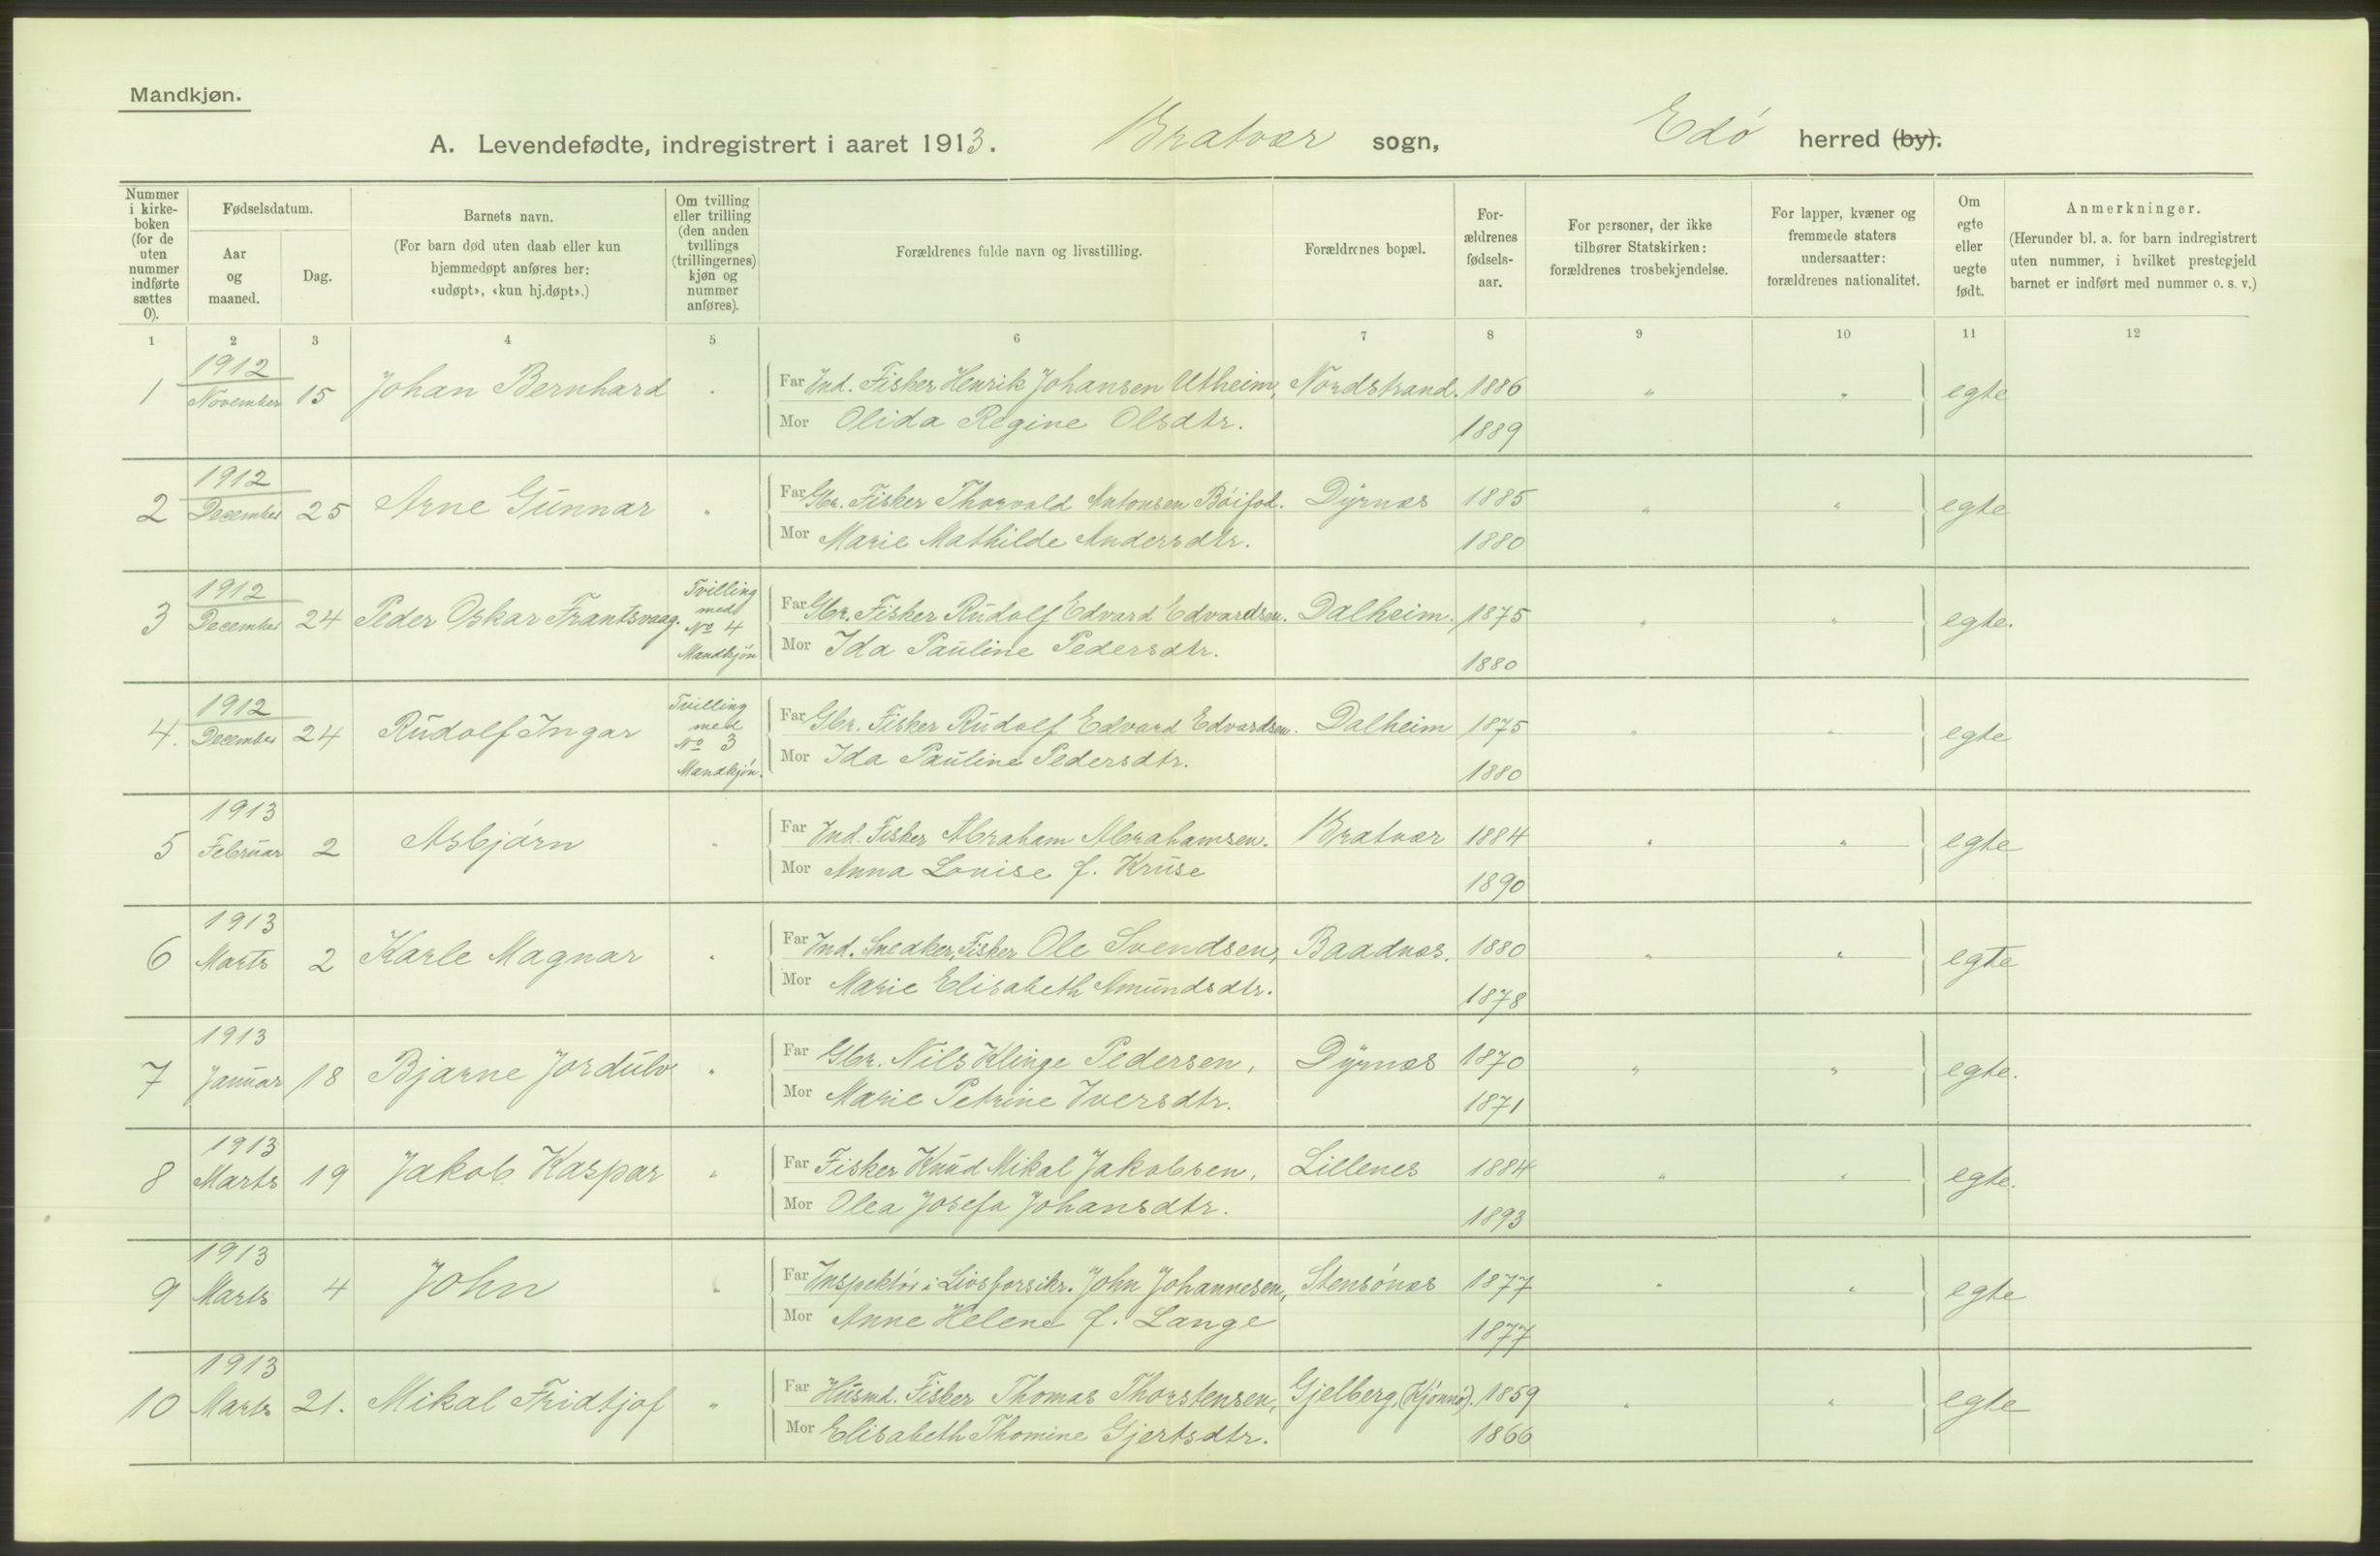 Mandkjøn.
A. Levendefødte, indregistrert i aaret 1913. Bratvær sogn, Edö herred (by).
Nummer i kirke- boken (for de uten nummer indførte sættes 0).
Fødselsdatum.
Aar og maaned.
Dag.
Barnets navn.
(For barn død uten daab eller kun hjemmedøpt anføres her: «udøpt», «kun hj.døpt».)
Om tvilling eller trilling (den anden tvillings (trillingernes) kjøn og nummer anføres).
Forældrenes fulde navn og livsstilling.
Forældrenes bopæl.
For- ældrenes fødsels- aar.
For personer, der ikke tilhører Statskirken: forældrenes trosbekjendelse.
For lapper, kvæner og fremmede staters undersaatter: forældrenes nationalitet.
Om egte eller uegte født.
Anmerkninger.
(Herunder bl. a. for barn indregistrert uten nummer, i hvilket prestegjeld barnet er indført med nummer o. s. v.)
1 2 3 4 5 6 7 8 9 10 11 12
1 1912 November 15 Johan Bernhard " Far Ind. Fisker Henrik Johansen Utheim, Nordstrand. 1886 " " egte
Mor Olida Regine Olsdtr. 1889
2 1912 December 25 Arne Gunnar " Far Gbr. Fisker Thorvald Antonsen Böifod. Dyrnæs 1885 " " egte
Mor Marie Mathilde Andersdtr. 1880
3 1912 December 24 Peder Oskar Frantsvaag. Tvilling med No 4 Mandkjön Far Gbr. Fisker Rudolf Edvard Edvardsen. Dalheim. 1875 " " egte.
Mor Ida Pauline Pedersdtr. 1880
4. 1912 December 24 Rudolf Ingar Tvilling med No 3 Mandkjön. Far Gbr. Fisker Rudolf Edvard Edvardsen. Dalheim 1875 " " egte
Mor Ida Pauline Pedersdtr. 1880
5 1913 Februar 2 Asbjörn " Far Ind. Fisker Abraham Abrahamsen. Bratvær 1884 " " egte
Mor Anna Louise f. Kruse 1890
6 1913 Marts 2 Karle Magnar " Far Ind. Snedker, Fisker Ole Svendsen, Baadnæs. 1880 " " egte
Mor Marie Elisabeth Amundsdtr. 1878
7 1913 Januar 18 Bjarne Jordulv " Far Gbr. Nils Klinge Pedersen, Dyrnæs 1870 " " egte.
Mor Marie Petrine Iversdtr. 1871
8 1913 Marts 19 Jakob Kaspar " Far Fisker Knud Mikal Jakobsen, Lillenes 1884 " " egte.
Mor Olea Josefa Johansdtr. 1893
9 1913 Marts 4 John " Far Inspektör i Livsforsikr. John Johannesen, Stensönæs 1877 " " egte
Mor Anne Helene f. Lange 1877
10 1913 Marts 21. Mikal Fridtjof " Far Husmd. Fisker Thomas Thorstensen, Gjelberg, 1859 " " egte
Mor Elisabeth Thomine Gjertsdtr. 1866